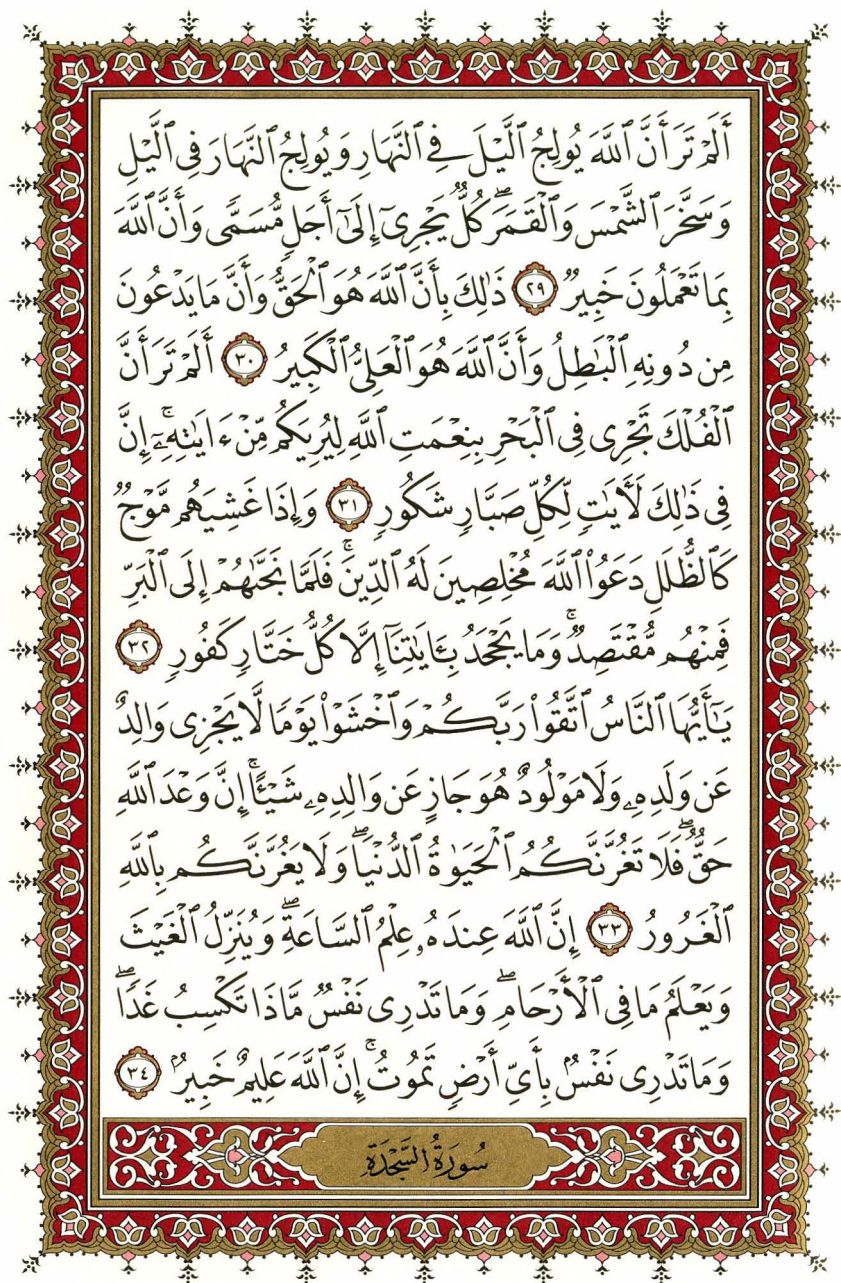 أَلَمْ تَرَ أَنَّ ٱللَّهَ يُولِجُ ٱلَّيْلَ فِي ٱلنَّهَارِ وَيُولِجُ ٱلنَّهَارَ فِي ٱلَّيْلِ
وَسَخَّرَ ٱلشَّمْسَ وَٱلْقَمَرَۖ كُلٌّ يَجْرِىٓ إِلَىٰٓ أَجَلٍ مُّسَمًّى وَأَنَّ ٱللَّهَ
بِمَا تَعْمَلُونَ خَبِيرٌ ٢٩ ذَٰلِكَ بِأَنَّ ٱللَّهَ هُوَ ٱلْحَقُّ وَأَنَّ مَا يَدْعُونَ
مِن دُونِهِ ٱلْبَٰطِلُ وَأَنَّ ٱللَّهَ هُوَ ٱلْعَلِىُّ ٱلْكَبِيرُ ٣٠ أَلَمْ تَرَ أَنَّ
ٱلْفُلْكَ تَجْرِى فِى ٱلْبَحْرِ بِنِعْمَتِ ٱللَّهِ لِيُرِيَكُم مِّنْ ءَايَٰتِهِۦٓۚ إِنَّ
فِى ذَٰلِكَ لَأٓيَٰتٍ لِّكُلِّ صَبَّارٍ شَكُورٍ ٣١ وَإِذَا غَشِيَهُم مَّوْجٌ
كَٱلظُّلَلِ دَعَوُا۟ ٱللَّهَ مُخْلِصِينَ لَهُ ٱلدِّينَ فَلَمَّا نَجَّىٰهُمْ إِلَى ٱلْبَرِّ
فَمِنْهُم مُّقْتَصِدٌۚ وَمَا يَجْحَدُ بِـَٔايَٰتِنَآ إِلَّا كُلُّ خَتَّارٍ كَفُورٍ ٣٢
يَٰٓأَيُّهَا ٱلنَّاسُ ٱتَّقُوا۟ رَبَّكُمْ وَٱخْشَوْا۟ يَوْمًا لَّا يَجْزِى وَالِدٌ
عَن وَلَدِهِۦ وَلَا مَوْلُودٌ هُوَ جَازٍ عَن وَالِدِهِۦ شَيْـًٔاۚ إِنَّ وَعْدَ ٱللَّهِ
حَقٌّۖ فَلَا تَغُرَّنَّكُمُ ٱلْحَيَوٰةُ ٱلدُّنْيَا وَلَا يَغُرَّنَّكُم بِٱللَّهِ
ٱلْغَرُورُ ٣٣ إِنَّ ٱللَّهَ عِندَهُۥ عِلْمُ ٱلسَّاعَةِ وَيُنَزِّلُ ٱلْغَيْثَ
وَيَعْلَمُ مَا فِى ٱلْأَرْحَامِۖ وَمَا تَدْرِى نَفْسٌ مَّاذَا تَكْسِبُ غَدًاۖ
وَمَا تَدْرِى نَفْسٌۢ بِأَىِّ أَرْضٍ تَمُوتُۚ إِنَّ ٱللَّهَ عَلِيمٌ خَبِيرٌۢ ٣٤
سُورَةُ السَّجْدَةِ